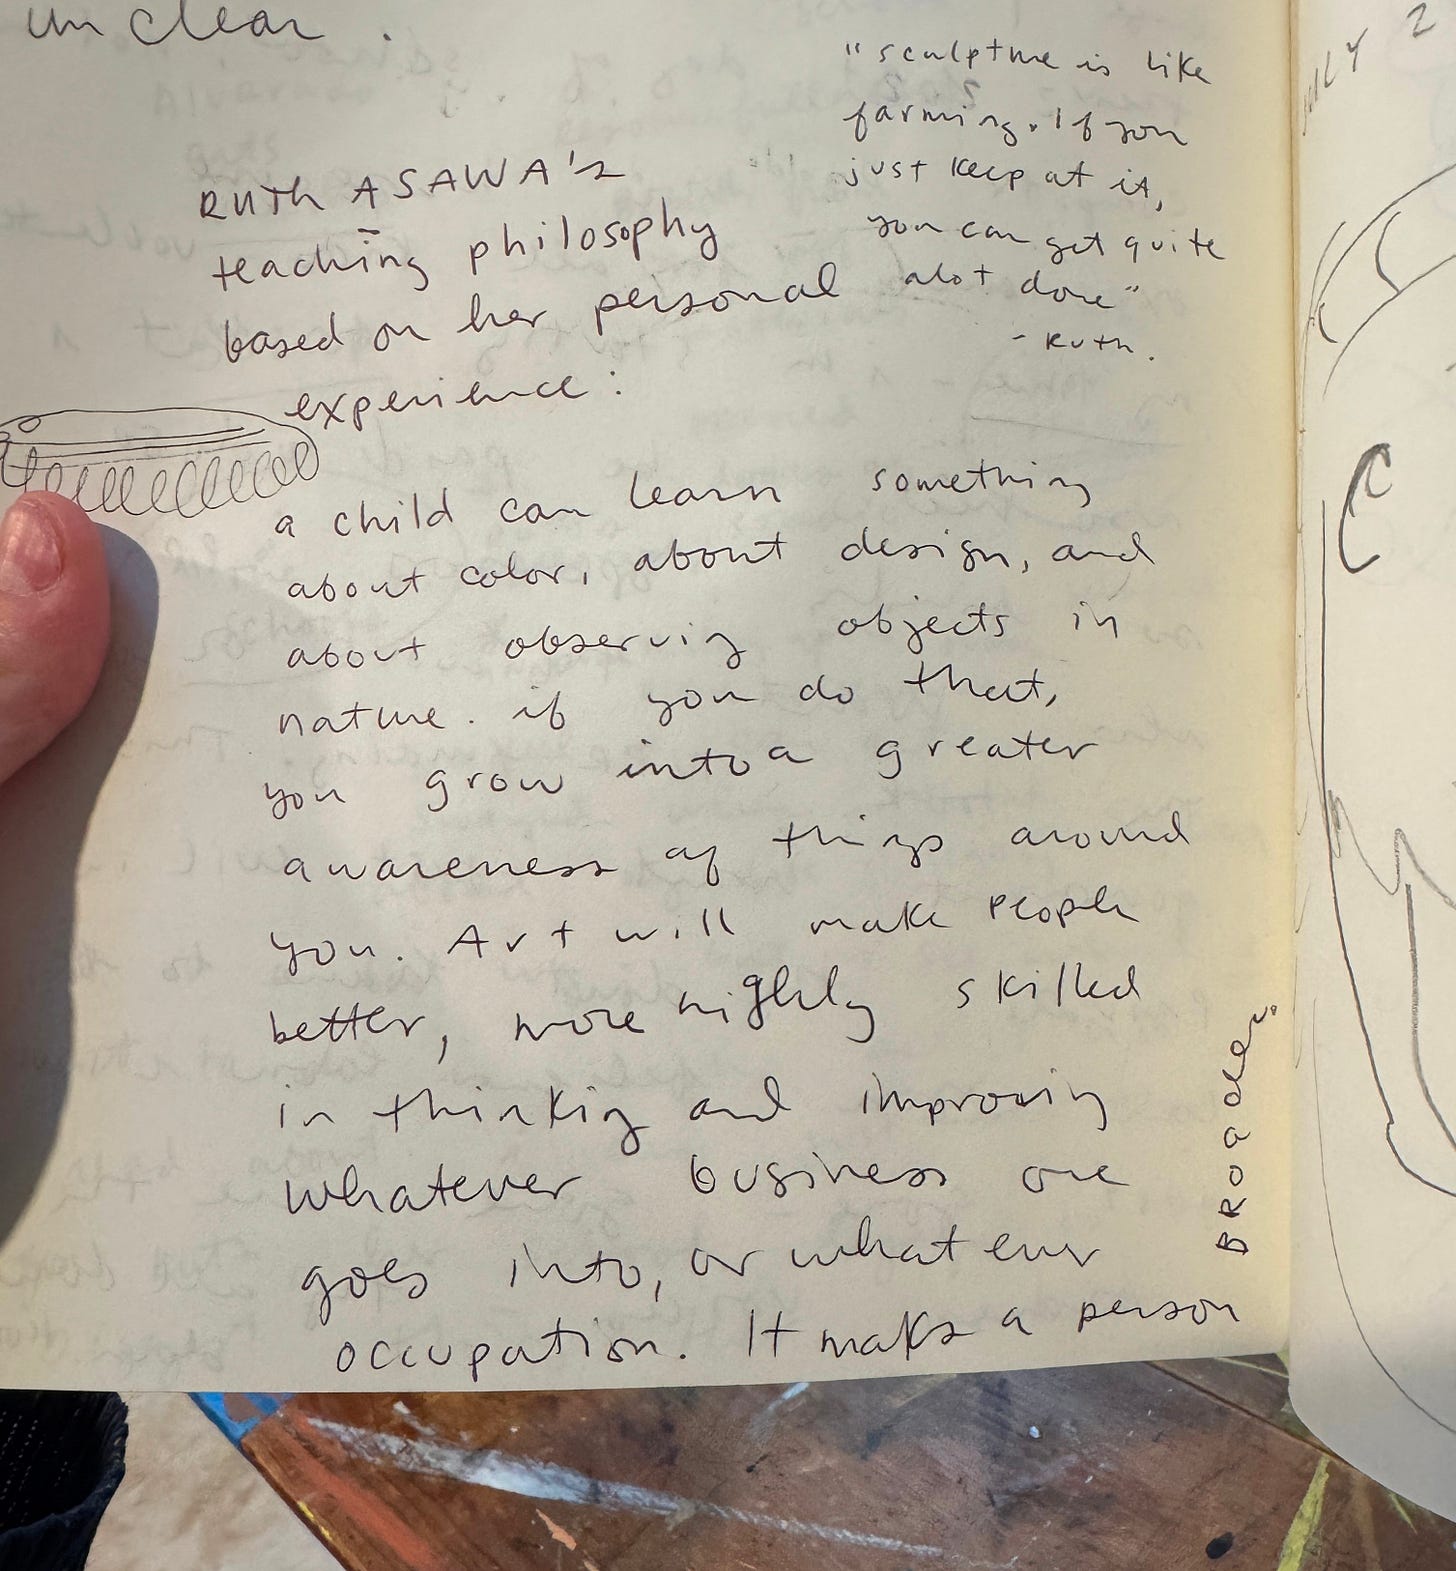 unclear.
"sculpture is like
farming. If you
just keep at it,
you can get quite
alot done"
- Ruth.
RUTH ASAWA's
teaching philosophy
based on her personal
experience:
a child can learn something
about color, about design, and
about observing objects in
nature. if you do that,
you grow into a greater
awareness of things around
you. Art will make people
better, more highly skilled
in thinking and improving
whatever business one
goes into, or whatever
occupation. It makes a person
BROADER.